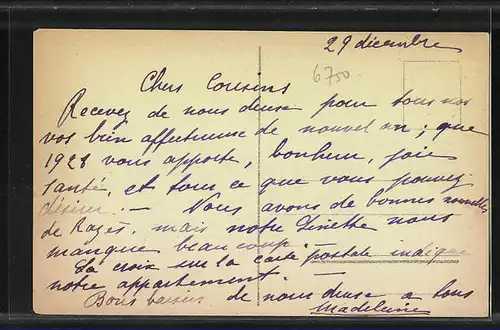 29 décembre
6750
Chers Cousins
Recevez de nous deuse pour tous nos
vos bien affectueuse de nouvel an ; que
1928 vous apporte, bonheur, joie
santé, et tous ce que vous pouvez
désirer. — Nous avons de bonnes nouvelles
de Kagès, mais notre Ginette nous
manque beaucoup.
La croix sur la carte postale indique
notre appartement. —
Bons baisers de nous deuse a tous
Madeleine